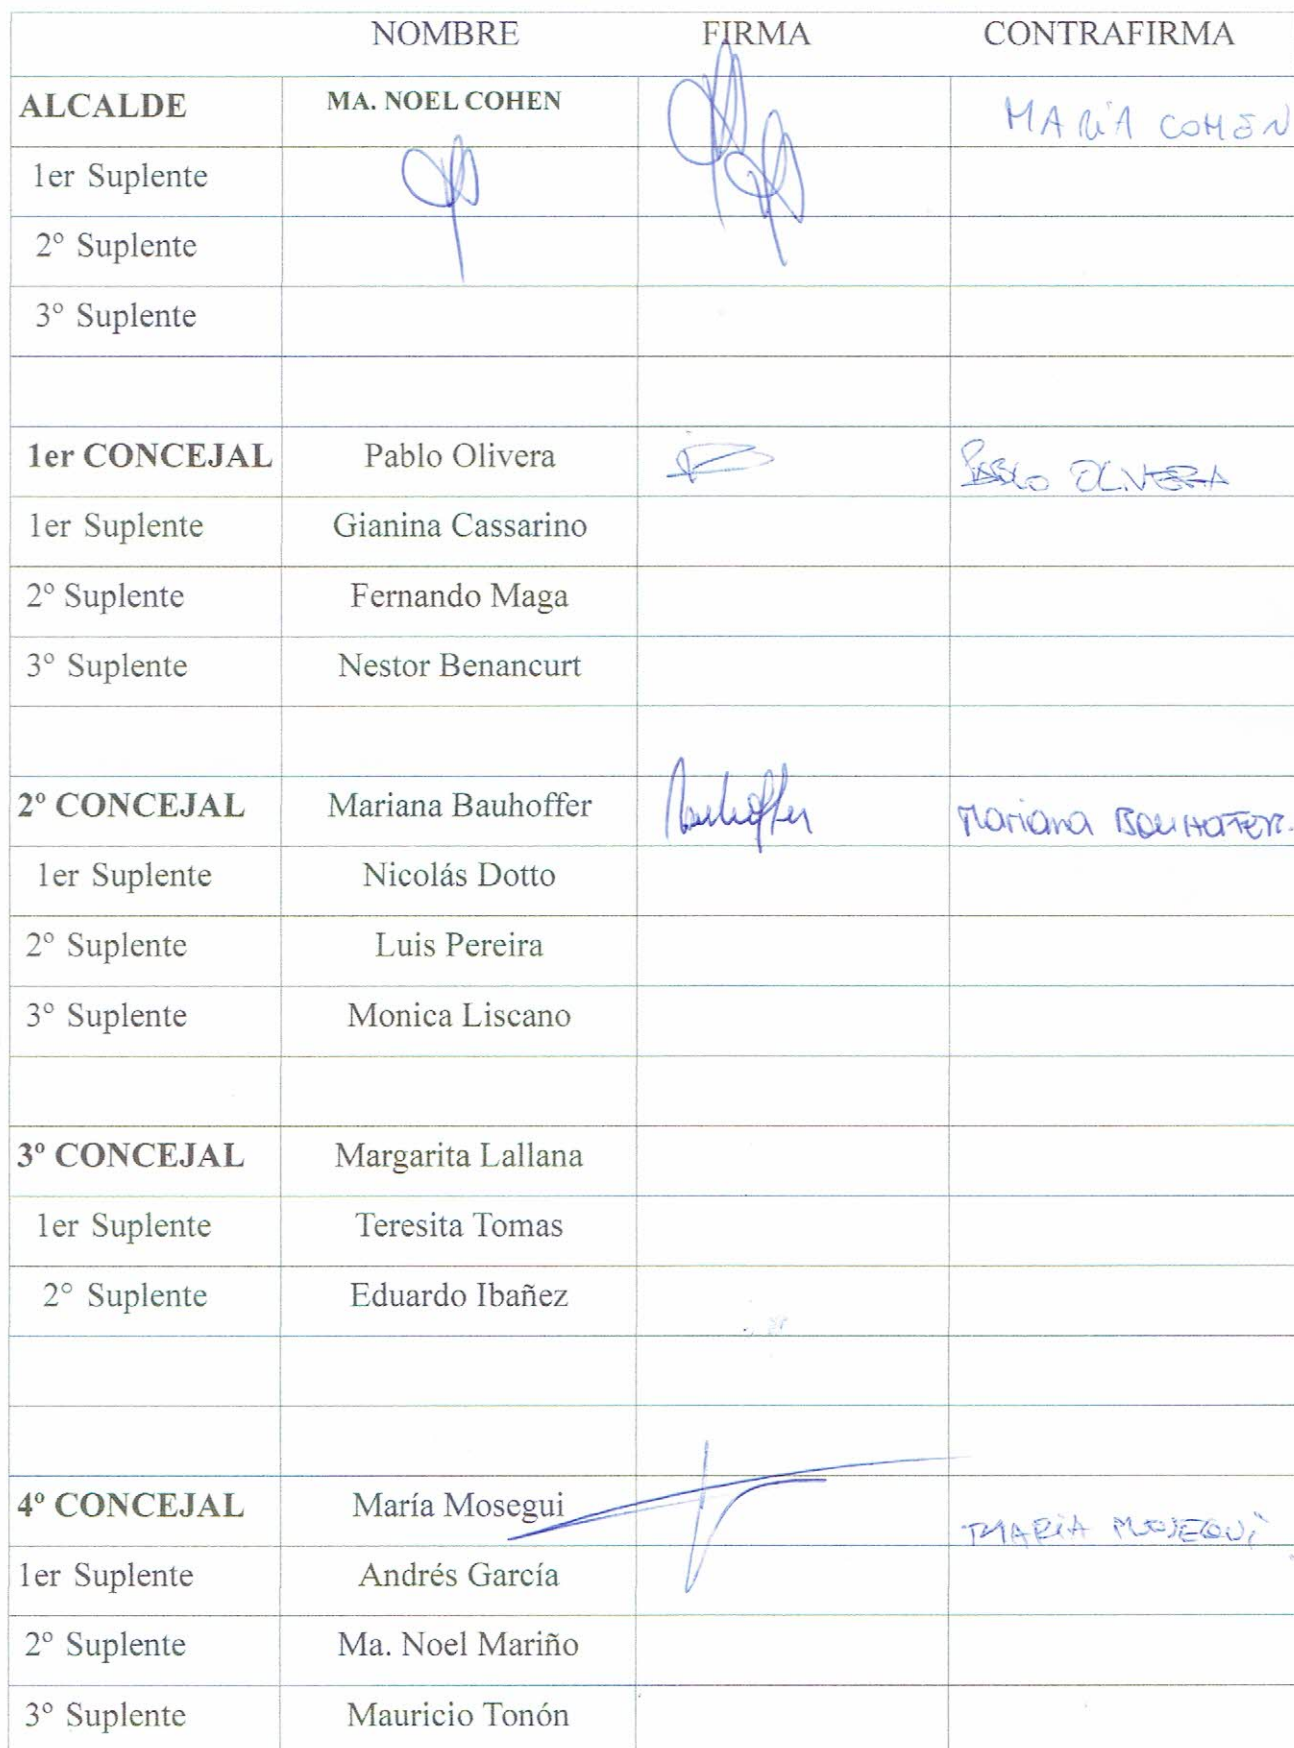 NOMBRE FIRMA CONTRAFIRMA
ALCALDE MA. NOEL COHEN MARÍA COHEN
1er Suplente
2º Suplente
3º Suplente
1er CONCEJAL Pablo Olivera PABLO OLIVERA
1er Suplente Gianina Cassarino
2º Suplente Fernando Maga
3º Suplente Nestor Benancurt
2º CONCEJAL Mariana Bauhoffer Bauhoffer Mariana BAUHOFFER.
1er Suplente Nicolás Dotto
2º Suplente Luis Pereira
3º Suplente Monica Liscano
3º CONCEJAL Margarita Lallana
1er Suplente Teresita Tomas
2° Suplente Eduardo Ibañez
4º CONCEJAL María Mosegui MARÍA MOSEGUI
1er Suplente Andrés García
2º Suplente Ma. Noel Mariño
3º Suplente Mauricio Tonón